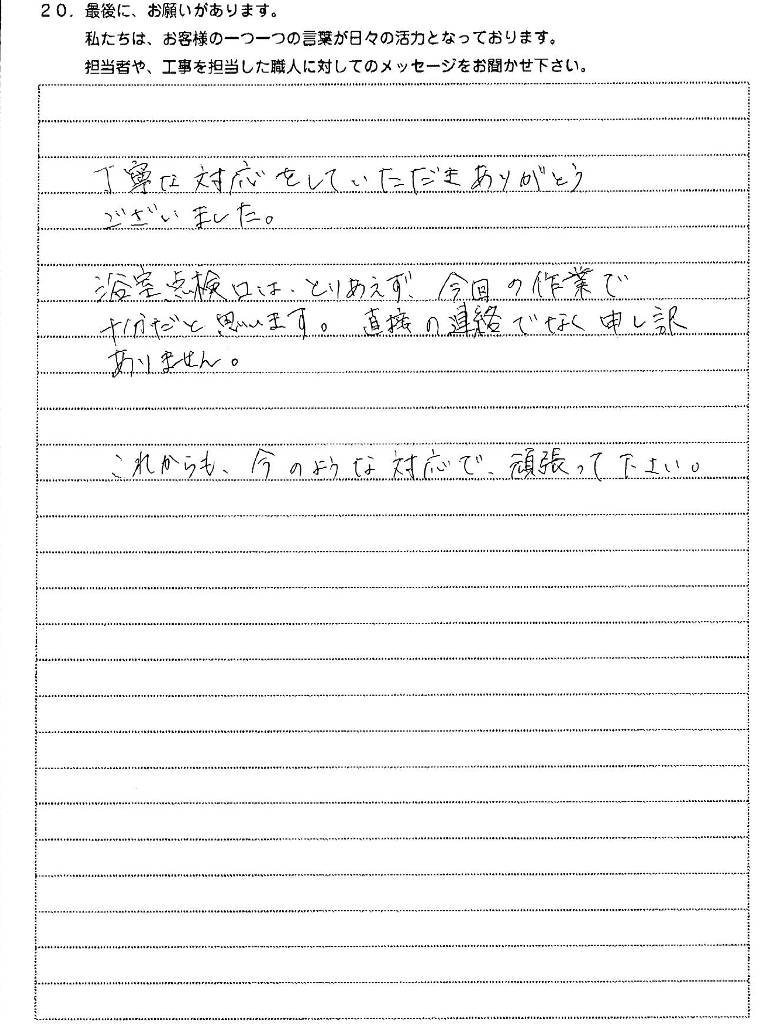 20. 最後に、お願いがあります。
私たちは、お客様の一つ一つの言葉が日々の活力となっております。
担当者や、工事を担当した職人に対してのメッセージをお聞かせ下さい。
丁寧な対応をしていただきありがとう
ございました。
浴室点検口は、とりあえず、今回の作業で
十分だと思います。直接の連絡でなく申し訳
ありません。
これからも、今のような対応で、頑張って下さい。